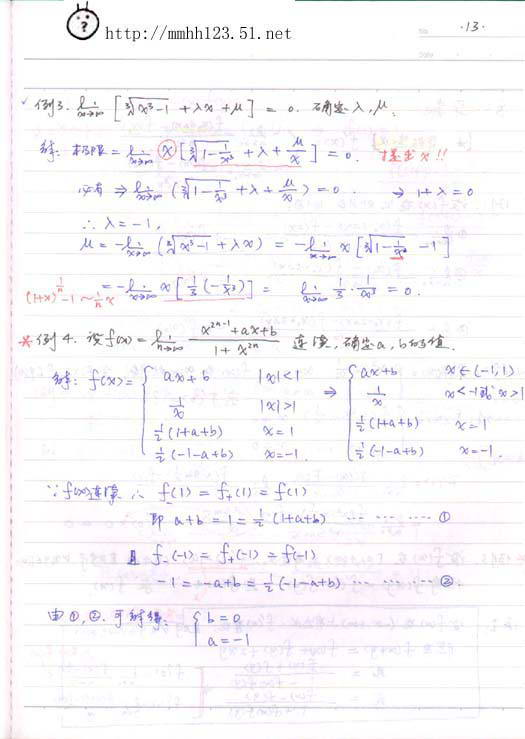 http://mmhh123.51.net
No
·13·
Date
例3. lim x→∞ [∛(x³-1) + λx + μ] = 0. 确定 λ, μ.
解: 极限 = lim x→∞ x[∛(1-1/x³) + λ + μ/x] = 0. 提出x!!
必有 ⇒ lim x→∞ (∛(1-1/x³) + λ + μ/x) = 0. ⇒ 1+λ=0
∴ λ = -1,
μ = -lim x→∞ (∛(x³-1) + λx) = -lim x→∞ x[∛(1-1/x³) -1]
= -lim x→∞ x[1/3(-1/x³)] = lim x→∞ 1/3 · 1/x³ = 0.
(1+x)^(1/n) -1 ~ 1/n x
* 例4. 设 f(x) = lim n→∞ (x^(2n-1)+ax+b)/(1+x^(2n)) 连续, 确定a, b的值.
解: f(x) = { ax+b |x|<1 ⇒ { ax+b x∈(-1,1)
1/x |x|>1 1/x x<-1或x>1
½(1+a+b) x=1 ½(1+a+b) x=1
½(-1-a+b) x=-1. ½(-1-a+b) x=-1.
∵ f(x)连续 ∴ f₋(1) = f₊(1) = f(1)
即 a+b = 1 = ½(1+a+b) ··· ··· ··· ①
且 f₋(-1) = f₊(-1) = f(-1)
-1 = -a+b = ½(-1-a+b) ··· ··· ··· ②.
由①,②.可解得: { b=0
a=-1